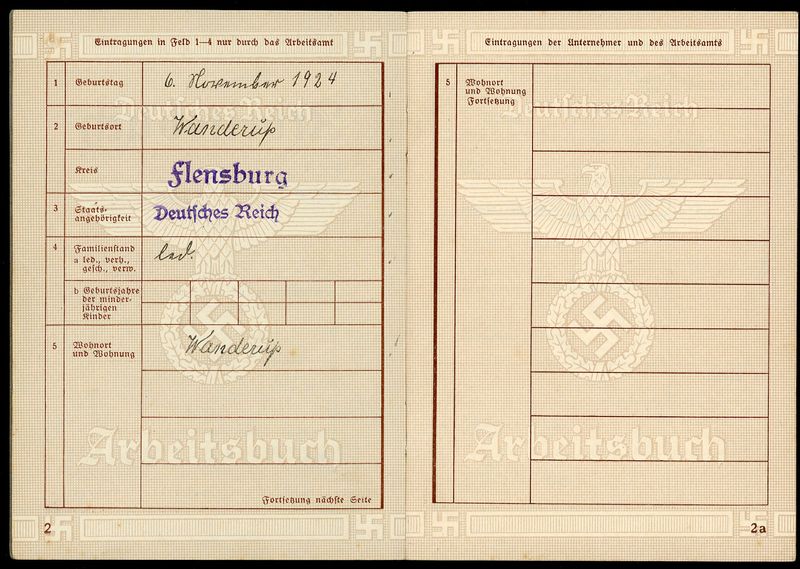 Eintragungen in Feld 1—4 nur durch das Arbeitsamt
Deutsches Reich
1 Geburtstag 6. November 1924
2 Geburtsort Wanderup
Kreis Flensburg
3 Staats-
angehörigkeit Deutsches Reich
4 Familienstand
a led., verh.,
gesch., verw. led.
b Geburtsjahre
der minder-
jährigen
Kinder
5 Wohnort
und Wohnung Wanderup
Arbeitsbuch
Fortsetzung nächste Seite
2
Eintragungen der Unternehmer und des Arbeitsamts
Deutsches Reich
5 Wohnort
und Wohnung
Fortsetzung
Arbeitsbuch
2a